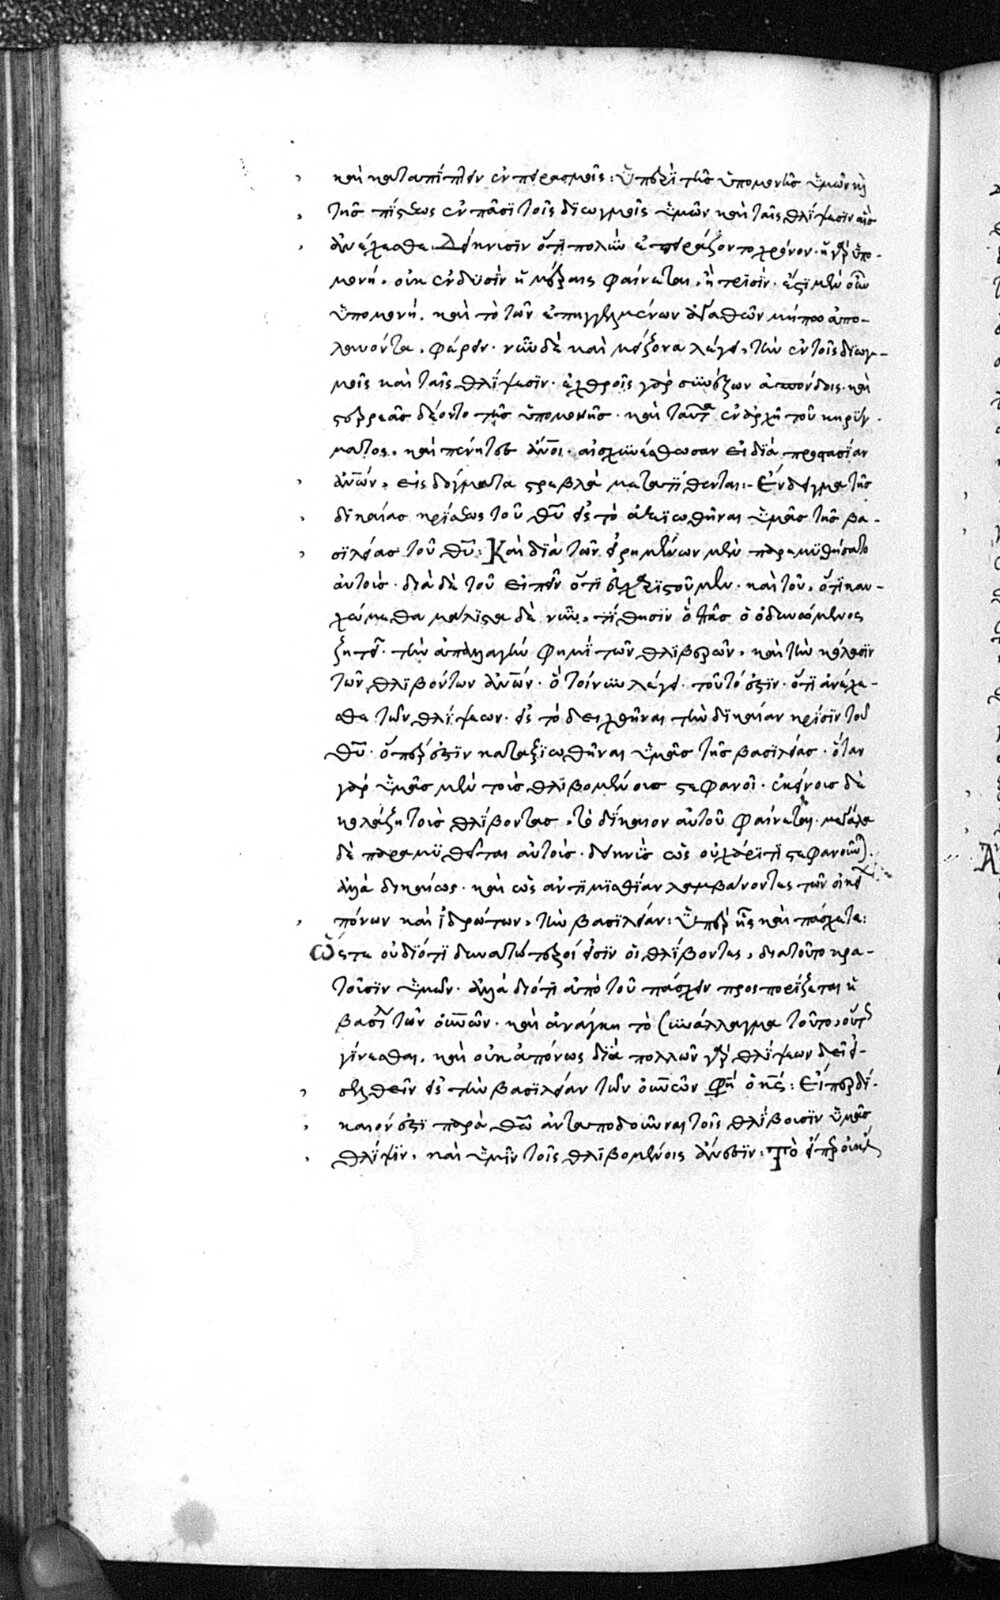 καὶ καταπίπτειν ἐν πειρασμοῖς: Ὑπὲρ τῆς ὑπομονῆς ὑμῶν καὶ
τῆς πίστεως ἐν πᾶσι τοῖς διωγμοῖς ὑμῶν καὶ ταῖς θλίψεσιν αἷς
ἀνέχεσθε. Δείκνυσιν ὅτι πολὺν ἐπειράζοντο χρόνον. ἡ γὰρ ὑπο-
μονή, οὐκ ἐν δυσὶν ἡμέραις φαίνεται, ἢ τρισίν. ἔστι μὲν οὖν
ὑπομονή, καὶ τὸ τῶν ἐπηγγελμένων ἀγαθῶν μήπω ἀπο-
λαύοντα, φέρειν. νῦν δὲ καὶ μείζονα λέγει, τὴν ἐν τοῖς διωγ-
μοῖς καὶ ταῖς θλίψεσιν. ἐχθροῖς γὰρ συνέζων ἀσπόνδοις. καὶ
στερρεᾶς δέοντο τῆς ὑπομονῆς. καὶ ταῦτα ἐν ἀρχῇ τοῦ κηρύγ-
ματος, καὶ πένητες ἄνοι. αἰσχυνέσθωσαν οἱ διὰ προστασίαν
ἀνων, εἰς δόγματα στρεβλὰ μετατιθενται:- Ἔνδειγμα τῆς
δικαίας κρίσεως τοῦ θυ εἰς τὸ ἀξιωθῆναι ὑμᾶς τῆς βα-
σιλείας τοῦ θυ: Καὶ διὰ τῶν εἰρημένων μὲν παρεμυθήσατο
αὐτοὺς. διὰ δὲ τοῦ εἰπεῖν ὅτι εὐχαριστοῦμεν. καὶ τοῦ, ὅτι καυ-
χώμεθα μάλιστα δὲ νῦν, τίθησιν ὃ πᾶς ὁ ὀδυνώμενος
ζητεῖ. τὴν ἀπαλλαγὴν φημὶ τῶν θλιβερῶν, καὶ τὴν κόλασιν
τῶν θλιβόντων ἀνων. ὃ τοίνυν λέγει. τοῦτό ἐστιν. ὅτι ἀνέχε-
σθε τῶν θλίψεων. εἰς τὸ δειχθῆναι τὴν δικαίαν κρίσιν τοῦ
θυ. ὅπερ ἐστὶν καταξιωθῆναι ὑμᾶς τῆς βασιλείας. ὅταν
γὰρ ὑμᾶς μὲν τοὺς θλιβομένους στεφανοῖ. ἐκείνοις δὲ
κολάζῃ τοὺς θλίβοντας, τὸ δίκαιον αὐτοῦ φαίνεται. μεγάλα
δὲ παραμυθεῖται αὐτούς. δεικνὺς ὡς οὐ χάριτι στεφανοῦνται.
ἀλλὰ δικαίως. καὶ ὡς ἀντιμισθίαν λαμβάνοντες τῶν οἰκείων
πόνων καὶ ἱδρώτων, τὴν βασιλείαν: Ὑπὲρ ἧς καὶ πάσχετε:
Ὥστε οὐ διότι δυνατώτεροί εἰσιν οἱ θλίβοντες, διατοῦτο κρα-
τοῦσιν ὑμῶν. ἀλλὰ διότι ἀπὸ τοῦ πάσχειν προσπορίζεται ἡ
βασιλεία τῶν οὐνων. καὶ ἀνάγκη τὸ συνάλλαγμα τοῦτο, οὕτως
γίνεσθαι, καὶ οὐκ ἀπόνως διὰ πολλῶν γὰρ θλίψεων δεῖ εἰ-
σελθεῖν εἰς τὴν βασιλείαν τῶν οὐνων φη ὁ κς: Εἴπερ δί-
καιόν ἐστι παρὰ θω ἀνταποδοῦναι τοῖς θλίβουσιν ὑμᾶς
θλίψιν, καὶ ὑμῖν τοῖς θλιβομένοις ἄνεσιν: Τὸ εἴπερ